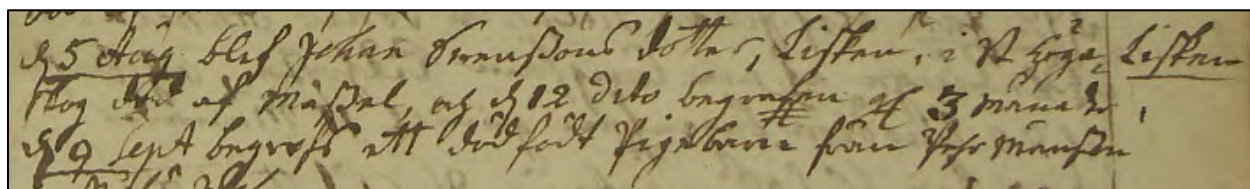 d 5 Aug blef Johan Svenßons dotter, Lisken, i St Höga- Lisken
skog död af Mäßel, och d 12 dito begrafven gl 3 månader
d 9 Sept begrofs ett dödfödt Pigebarn från Pehr Månßon